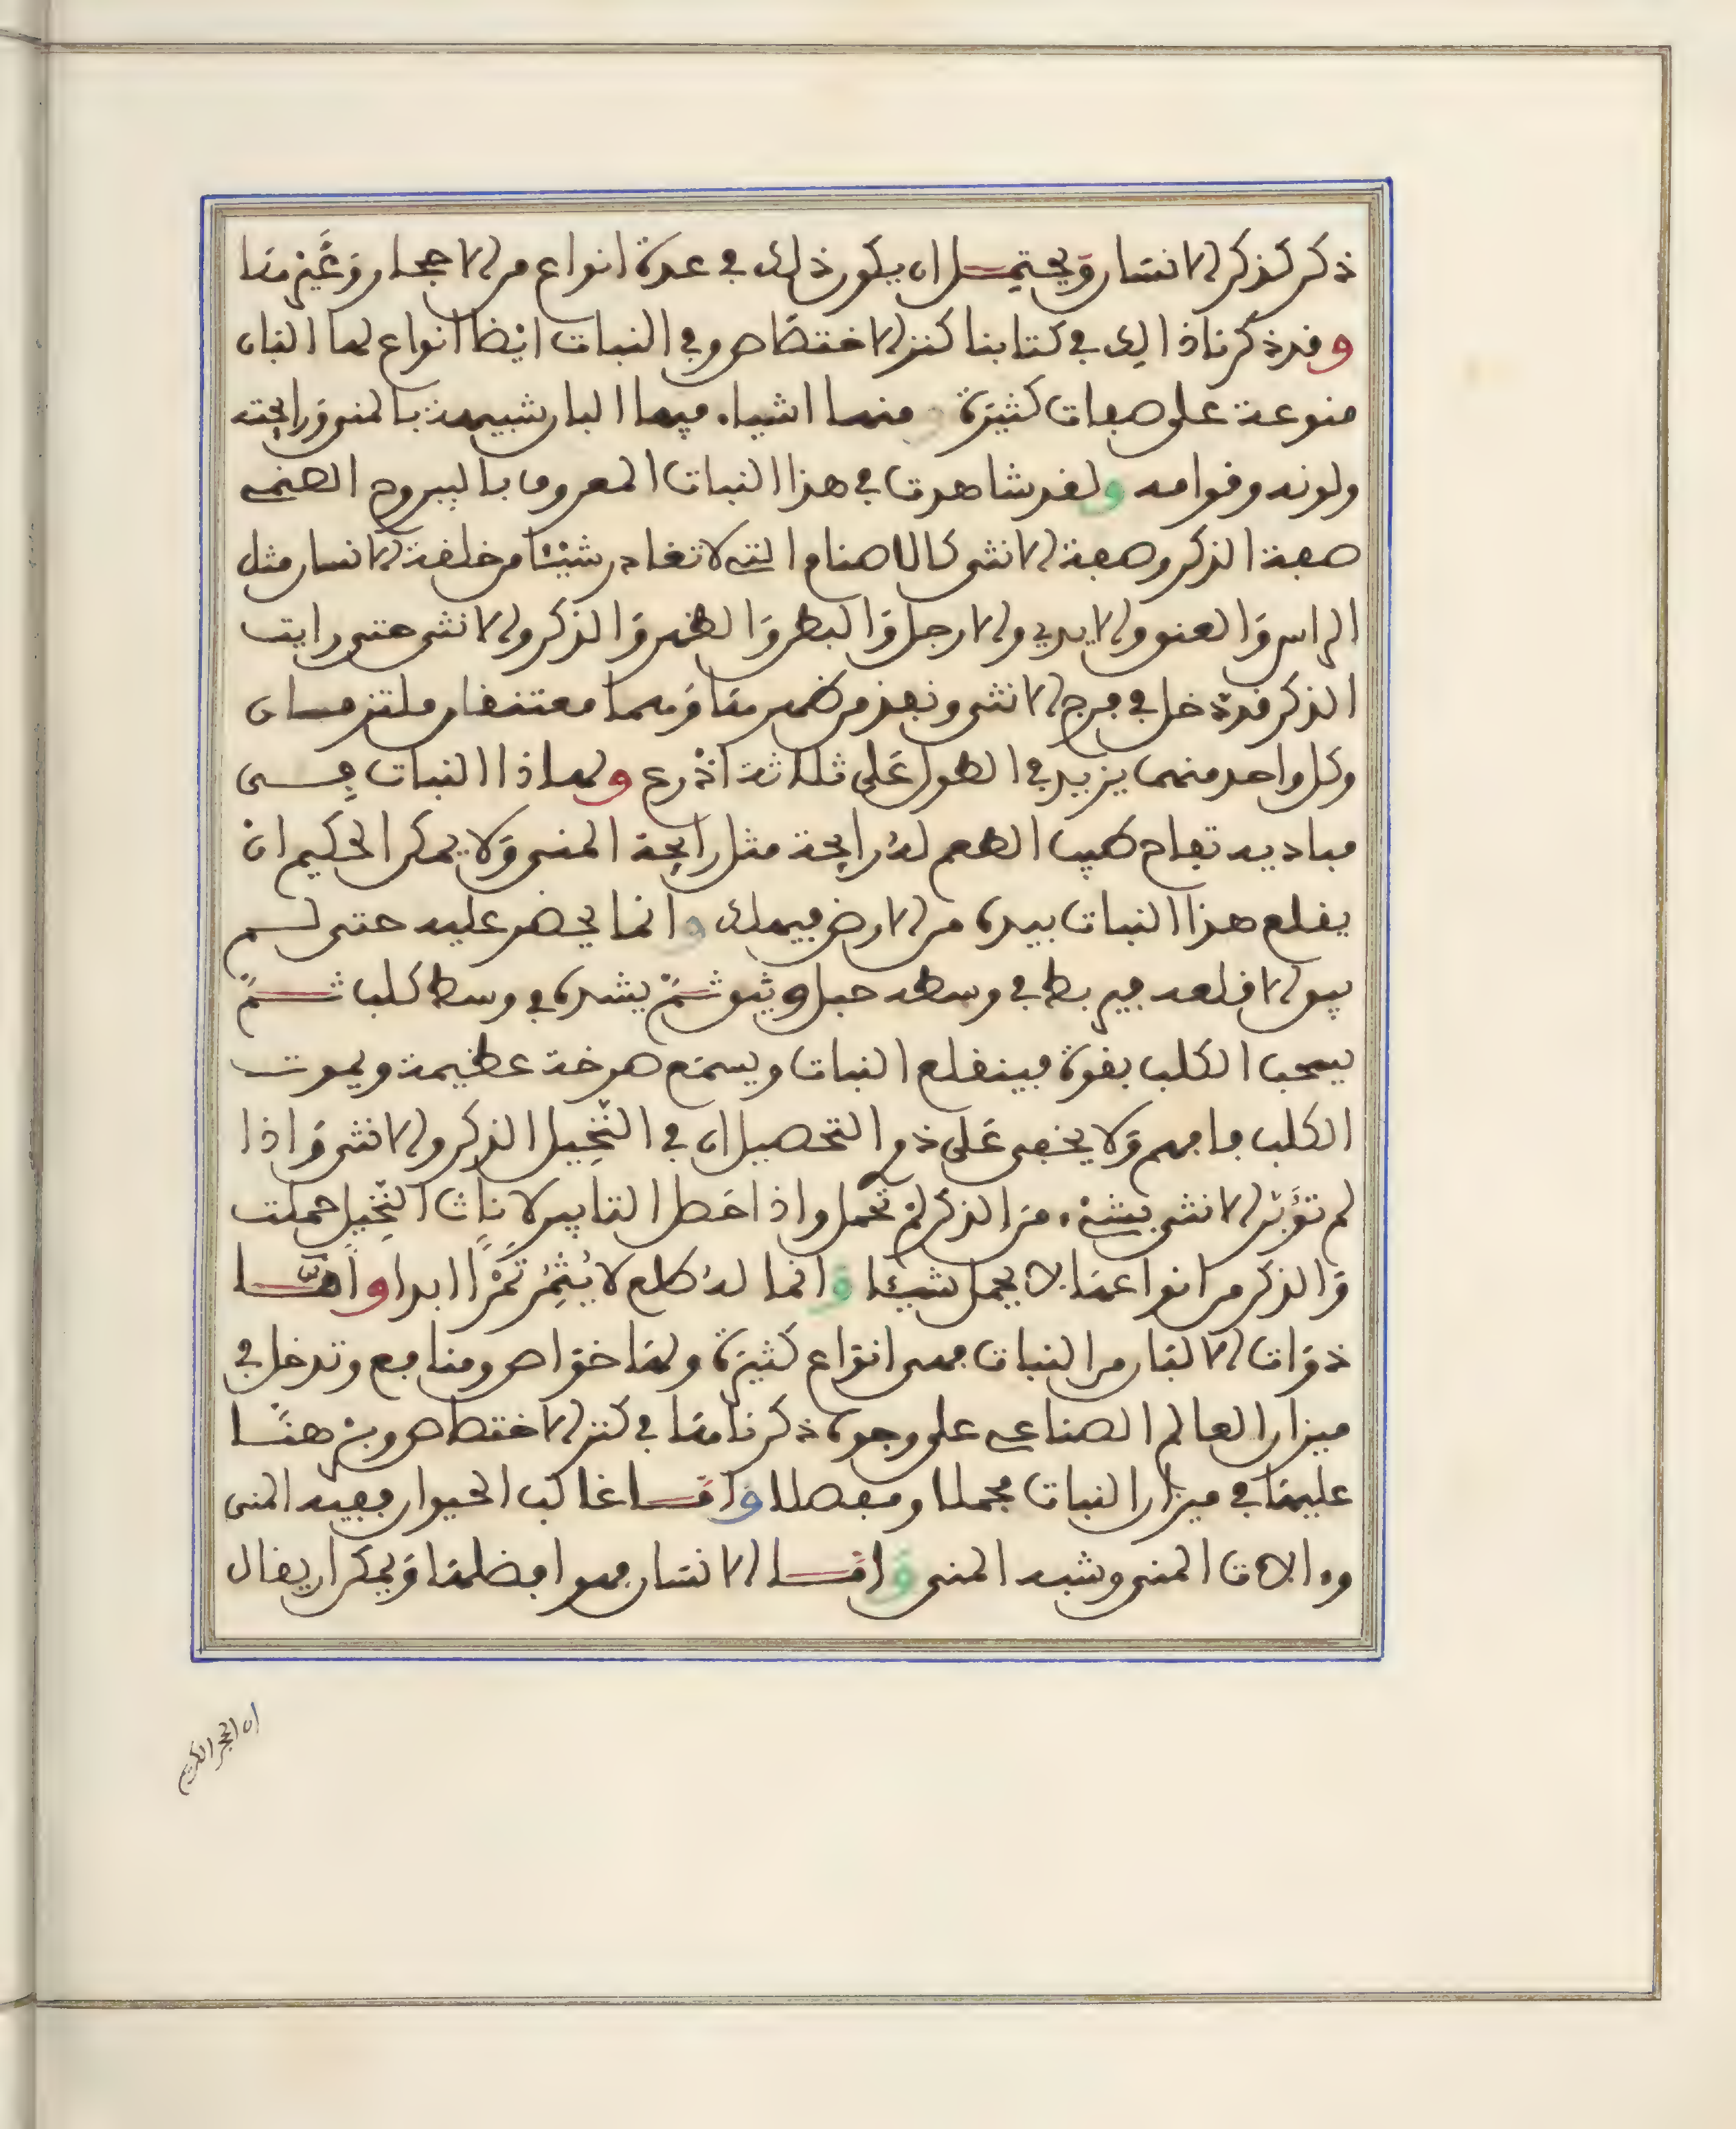 ذكر كذكر الانسان ويحتمل ان يكون ذلك في عدة انواع من الاحجار وغيرها
وقد ذكرنا ذالك في كتابنا كنز الاختصاص وفي النبات ايضا انواع لها البان
منوعة على صفات كثيرة ومنها اشياء فيها البان شبيهة بالمني ورايحته
ولونه وقوامه ولقد شاهدت في هذا النبات المعروف باليبروح الصنمي
صفة الذكر وصفة الانثى كالاصنام التي لا تغادر شيئا من خلقة الانسان مثل
الراس والعنق والايدي والارجل والبطن والظهر والذكر والانثى حتى رايت
الذكر قد دخل في فرج الانثى ونفذ من ظهرها وهما معتنقان ملتزمان
وكل واحد منهما يزيد في الطول على ثلاثة اذرع ولهاذا النبات في
مباديه تفاح طيب الطعم له رايحة مثل رايحة المني ولا يمكن الحكيم ان
يقلع هذا النبات بيده من الارض فيهلك وانما يحفر عليه حتى لم
يبق الا قلعه فيربط في وسطه حبل وثيق ثم يشده في وسط كلب ثم
يسحب الكلب بقوة فينقلع النبات ويسمع صرخة عظيمة ويموت
الكلب فافهم ولا يخفى على ذوي التحصيل ان في النخيل الذكر والانثى واذا
لم تؤبر الانثى بشيء من الذكر لم تحمل واذا حصل التابير لاناث النخيل حملت
والذكر من انواعها لا يحمل شيئا وانما له طلع لا يثمر تمرا ابدا واما
ذوات الالبان من النبات فهي انواع كثيرة ولها خواص ومنافع وتدخل في
ميزان العالم الصناعي على وجوه ذكرناها في كنز الاختصاص وبرهنا
عليها في ميزان النبات مجملا ومفصلا واما غالب الحيوان ففيه المني
وءالات المني وشبه المني واما الانسان فهو افضلها ويمكن ان يقال
ان الحجر الكريم